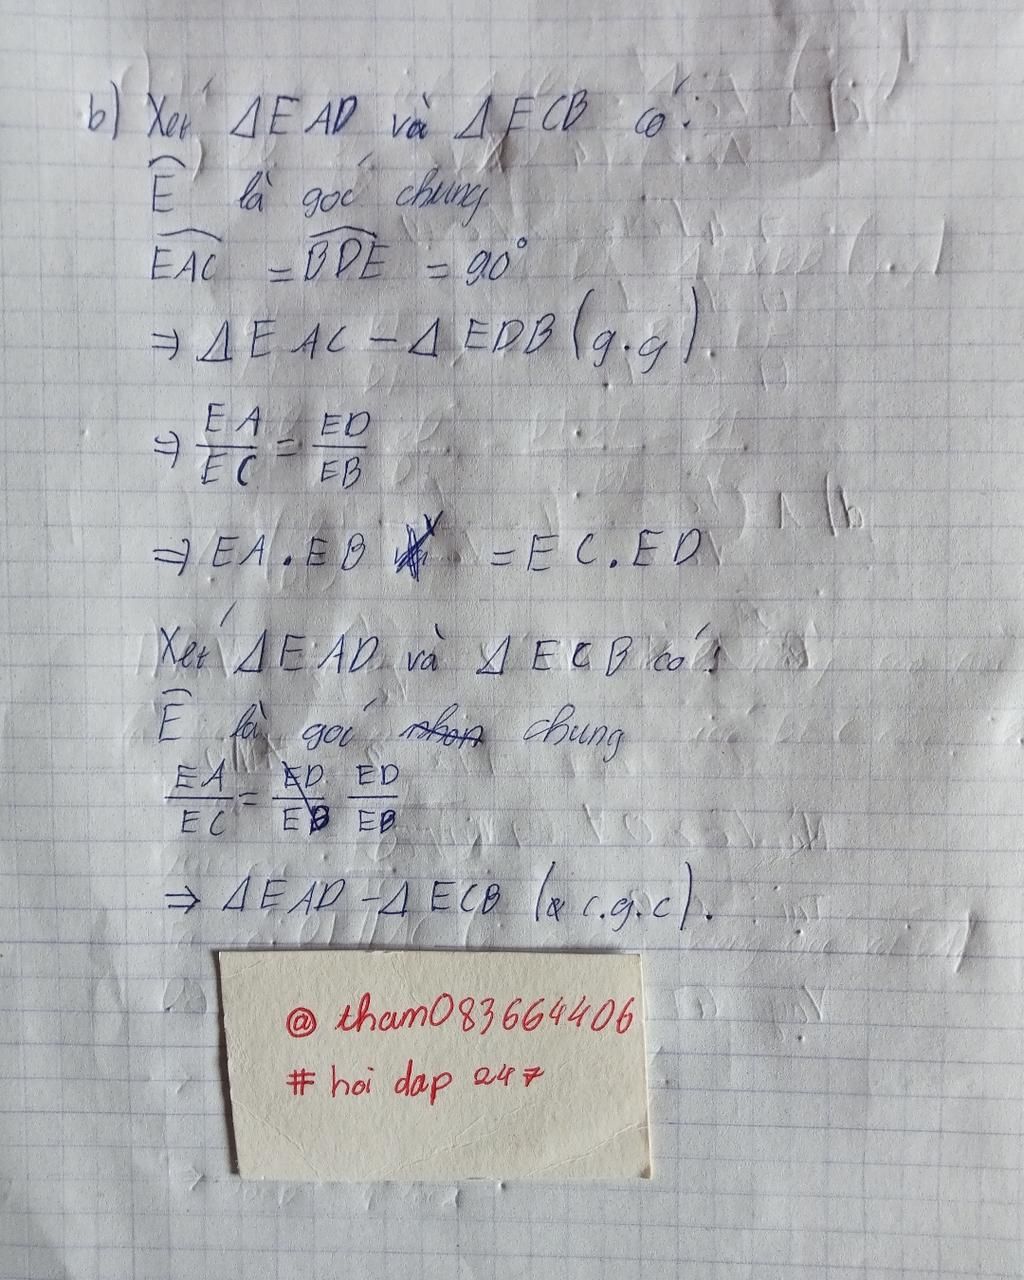 b) Xét ΔEAD và ΔECB có:
Ê là góc chung
EAC = BDE = 90°
⇒ ΔEAC - ΔEDB (g.g).
⇒ EA/EC = ED/EB
⇒ EA.EB = EC.ED
Xét ΔEAD và ΔECB có:
Ê là góc chung
EA/EC = ED/EB
⇒ ΔEAD - ΔECB (c.g.c).
@ tham083664406
# hoi dap 247